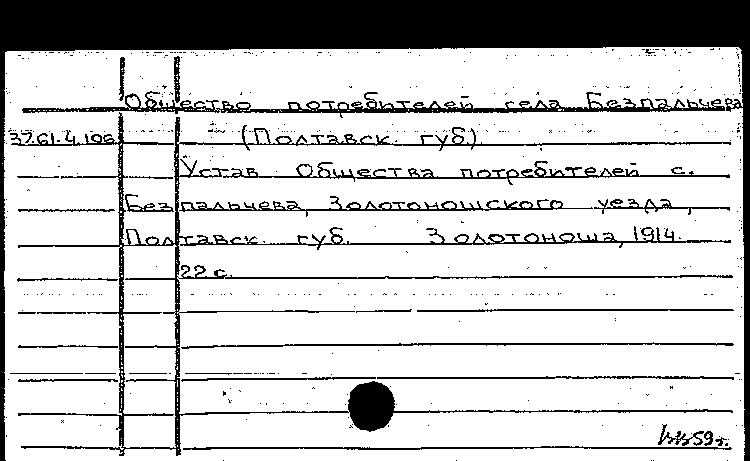 Общество потребителей села Безпальчева
37.61.4.106 (Полтавск. губ).
Устав Общества потребителей с.
Безпальчева, Золотоношского уезда,
Полтавск. губ. Золотоноша, 1914.
22 с.
59 г.